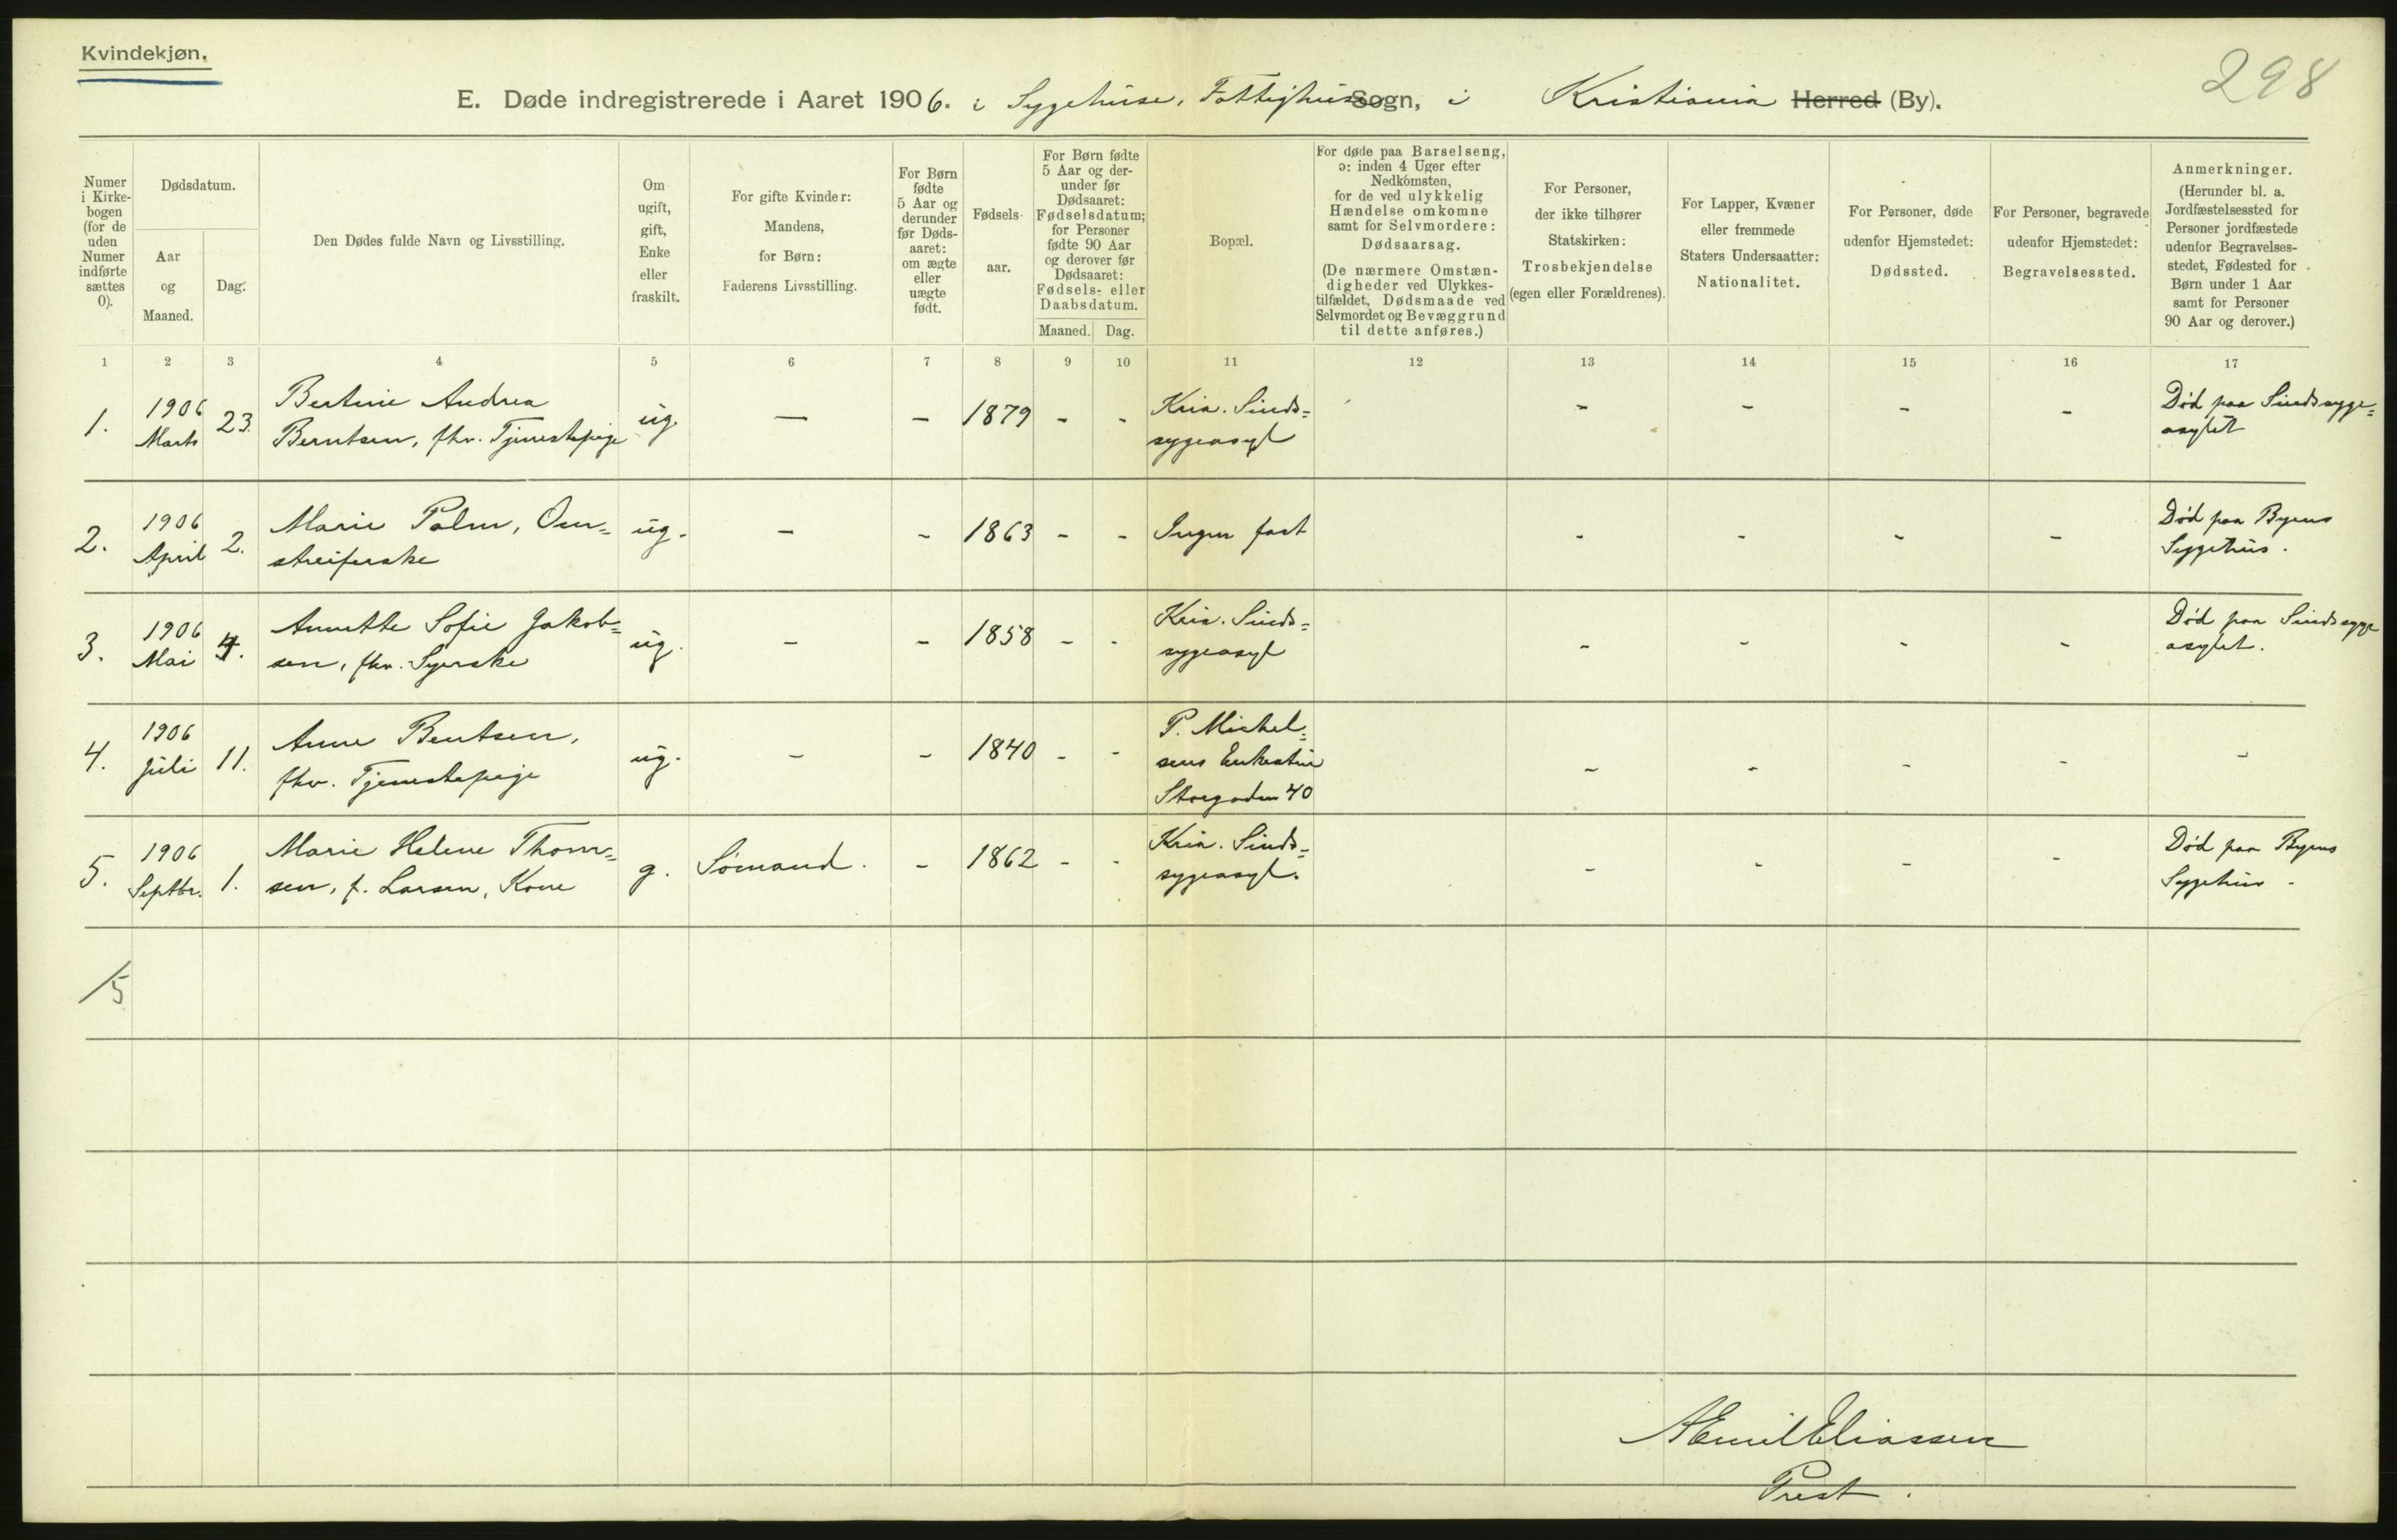 Kvindekjøn.
298
E. Døde indregistrerede i Aaret 1906. i Sygehuse, Fattighuse Sogn, i Kristiania Herred (By).
Numer i Kirkebogen (for de uden Numer indførte sættes 0).
Dødsdatum.
Aar og Maaned.
Dag.
Den Dødes fulde Navn og Livsstilling.
Om ugift, gift, Enke eller fraskilt.
For gifte Kvinder: Mandens, for Børn: Faderens Livsstilling.
For Børn fødte 5 Aar og derunder før Dødsaaret: om ægte eller uægte født.
Fødselsaar.
For Børn fødte 5 Aar og derunder før Dødsaaret: Fødselsdatum; for Personer fødte 90 Aar og derover før Dødsaaret: Fødsels- eller Daabsdatum.
Maaned. Dag.
Bopæl.
For døde paa Barselseng, ɔ: inden 4 Uger efter Nedkomsten, for de ved ulykkelig Hændelse omkomne samt for Selvmordere: Dødsaarsag.
(De nærmere Omstændigheder ved Ulykkestilfældet, Dødsmaade ved Selvmordet og Bevæggrund til dette anføres.)
For Personer, der ikke tilhører Statskirken: Trosbekjendelse (egen eller Forældrenes).
For Lapper, Kvæner eller fremmede Staters Undersaatter: Nationalitet.
For Personer, døde udenfor Hjemstedet: Dødssted.
For Personer, begravede udenfor Hjemstedet: Begravelsessted.
Anmerkninger.
(Herunder bl. a. Jordfæstelsessted for Personer jordfæstede udenfor Begravelsesstedet, Fødested for Børn under 1 Aar samt for Personer 90 Aar og derover.)
1 2 3 4 5 6 7 8 9 10 11 12 13 14 15 16 17
1. 1906 Marts 23. Bertine Andrea Berntsen, fhv. Tjenestepige ug. — - 1879 - - Kria. Sinds=sygeasyl - - - - Død paa Sindssyge=asylet
2. 1906 April 2. Marie Palm, Om=streiferske ug. - - 1863 - - Ingen fast - - - - Død paa Byens Sygehus.
3. 1906 Mai 4. Annette Sofie Jakob=sen, fhv. Syerske ug. - - 1858 - - Kria. Sinds=sygeasyl - - - - Død paa Sindssyge asylet.
4. 1906 Juli 11. Anne Bentsen, fhv. Tjenestepige ug. - - 1840 - - P. Michel=sens Enkestue Storgaden 40 - - - - -
5. 1906 Septbr. 1. Marie Helene Thom=sen, f. Larsen, Kone g. Sømand. - 1862 - - Kria. Sinds=sygeasyl. - - - - Død paa Byens Sygehus -
/5
A Emil Eliassen
Prest.